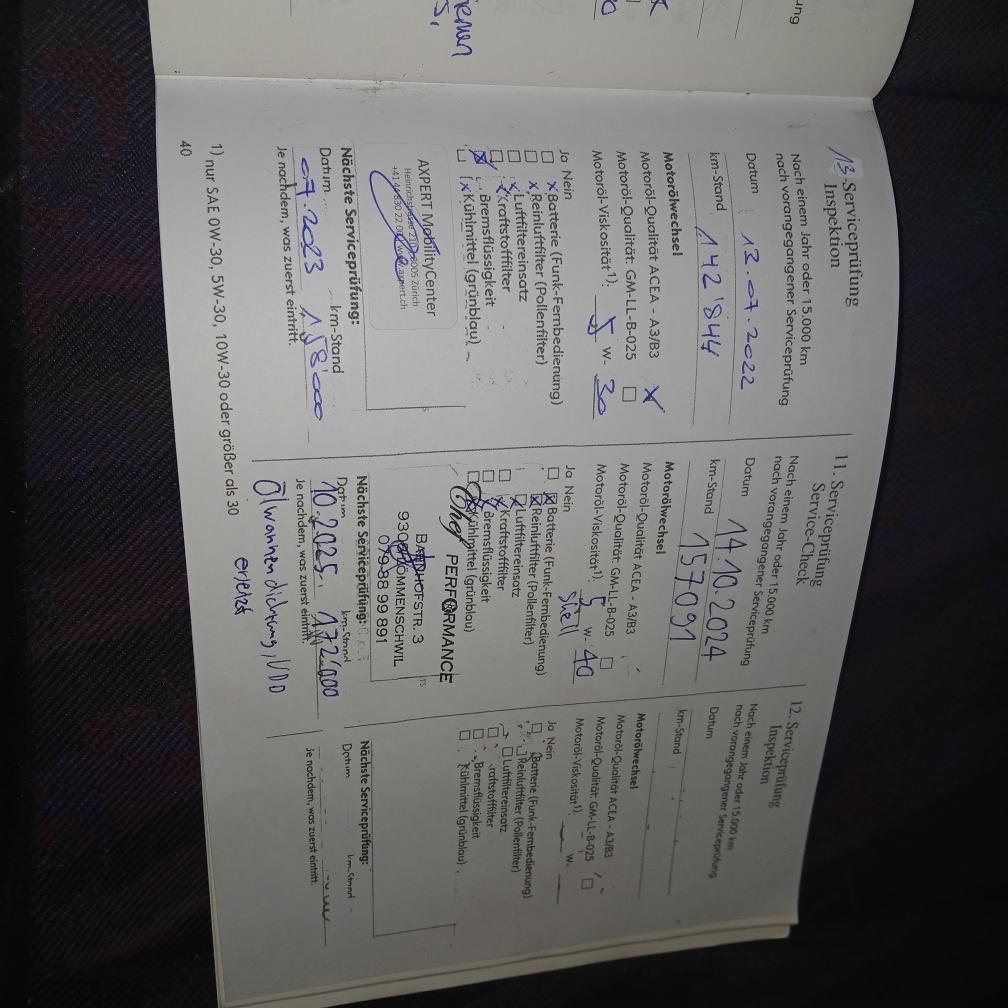 ung
13 Serviceprüfung
Inspektion
Nach einem Jahr oder 15.000 km
nach vorangegangener Serviceprüfung
Datum 13.07.2022
km-Stand 142'844
Motorölwechsel
Motoröl-Qualität ACEA - A3/B3 X
Motoröl-Qualität: GM-LL-B-025
Motoröl-Viskosität¹): 5 W- 30
Ja Nein
x Batterie (Funk-Fernbedienung)
x Reinluftfilter (Pollenfilter)
x Luftfiltereinsatz
x Kraftstofffilter
x Bremsflüssigkeit
x Kühlmittel (grünblau)
AXPERT MobilityCenter
8005 Zürich
Nächste Serviceprüfung:
Datum km-Stand
07.2023 158'000
Je nachdem, was zuerst eintritt.
1) nur SAE 0W-30, 5W-30, 10W-30 oder größer als 30
40
11. Serviceprüfung
Service-Check
Nach einem Jahr oder 15.000 km
nach vorangegangener Serviceprüfung
Datum 14.10.2024
km-Stand 157091
Motorölwechsel
Motoröl-Qualität ACEA - A3/B3
Motoröl-Qualität: GM-LL-B-025
Motoröl-Viskosität¹): 5 W- 40
Shell
Ja Nein
x Batterie (Funk-Fernbedienung)
x Reinluftfilter (Pollenfilter)
x Luftfiltereinsatz
x Kraftstofffilter
x Bremsflüssigkeit
x Kühlmittel (grünblau)
PERFORMANCE
BAHNHOFSTR. 3
ÖMMENSCHWIL
88 99 891
Nächste Serviceprüfung:
Datum km-Stand
10.2025 172'000
Je nachdem, was zuerst eintritt.
Ölwannendichtung
ersetzt
12. Serviceprüfung
Inspektion
Nach einem Jahr oder 15.000 km
nach vorangegangener Serviceprüfung
Datum
km-Stand
Motorölwechsel
Motoröl-Qualität ACEA - A3/B3
Motoröl-Qualität: GM-LL-B-025
Motoröl-Viskosität¹): W-
Ja Nein
Batterie (Funk-Fernbedienung)
Reinluftfilter (Pollenfilter)
Luftfiltereinsatz
Kraftstofffilter
Bremsflüssigkeit
Kühlmittel (grünblau)
Nächste Serviceprüfung:
Datum km-Stand
Je nachdem, was zuerst eintritt.